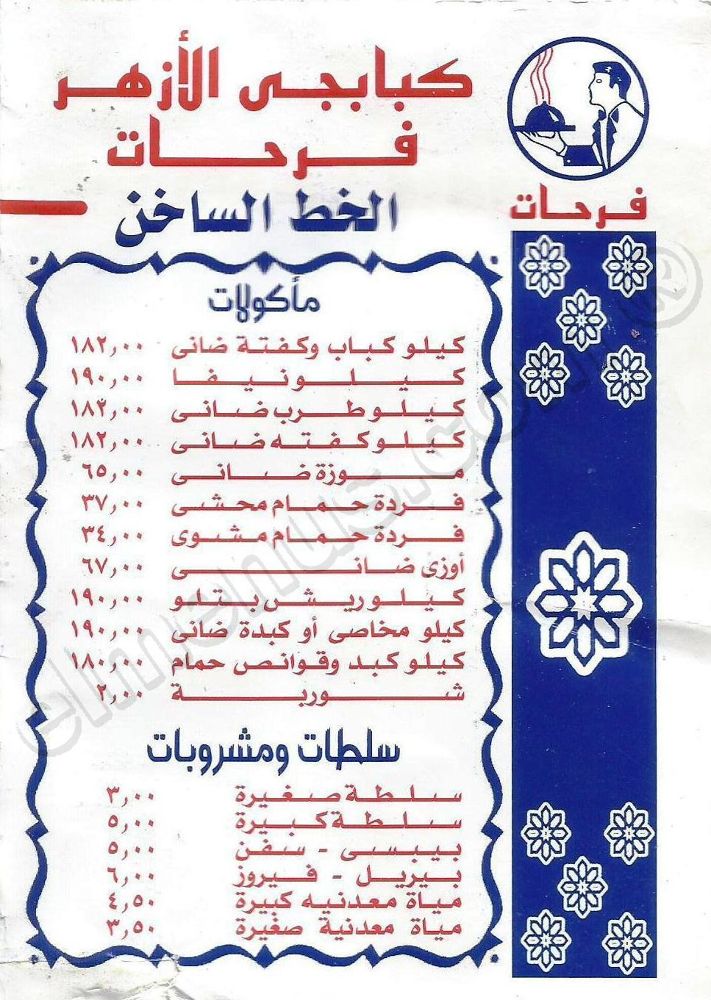 كبابجى الأزهر
فرحات
الخط الساخن
فرحات
مأكولات
كيلو كباب وكفتة ضانى ١٨٢,٠٠
كيلو نيفا ١٩٠,٠٠
كيلو طرب ضانى ١٨٢,٠٠
كيلو كفته ضانى ١٨٢,٠٠
موزة ضانى ٦٥,٠٠
فردة حمام محشى ٣٧,٠٠
فردة حمام مشوى ٣٤,٠٠
أوزى ضانى ٦٧,٠٠
كيلو ريش بتلو ١٩٠,٠٠
كيلو مخاصى أو كبدة ضانى ١٩٠,٠٠
كيلو كبد وقوانص حمام ١٨٠,٠٠
شوربة ٢,٠٠
سلطات ومشروبات
سلطة صغيرة ٣,٠٠
سلطة كبيرة ٥,٠٠
بيبسى - سفن ٥,٠٠
بيريل - فيروز ٦,٠٠
مياة معدنيه كبيرة ٤,٥٠
مياة معدنية صغيرة ٣,٥٠
elmenus.com ®